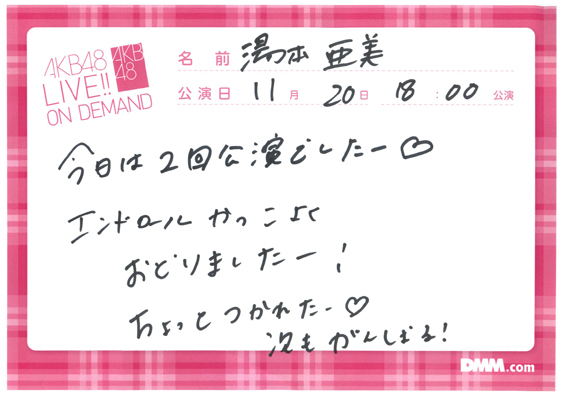 AKB48
LIVE!!
ON DEMAND
AKB
48
名前 湯本 亜美
公演日 11月 20日 18:00 公演
今日は2回公演でしたー♡
エンドロール かっこよく
おどりましたー!
ちょっとつかれたー♡
次もがんばる!
DMM.com